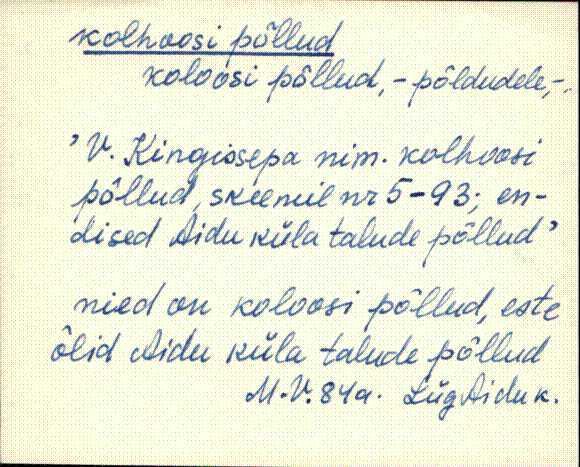 kolhoosi põllud
koloosi põllud, - põldudele, -.
' V. Kingissepa nim. kolhoosi
põllud, skeemil nr 5-93; en-
dised Aidu küla talude põllud '
nied on koloosi põllud, este
õlid Aidu küla talude põllud
M.V. 84a. Lüg Aidu k.